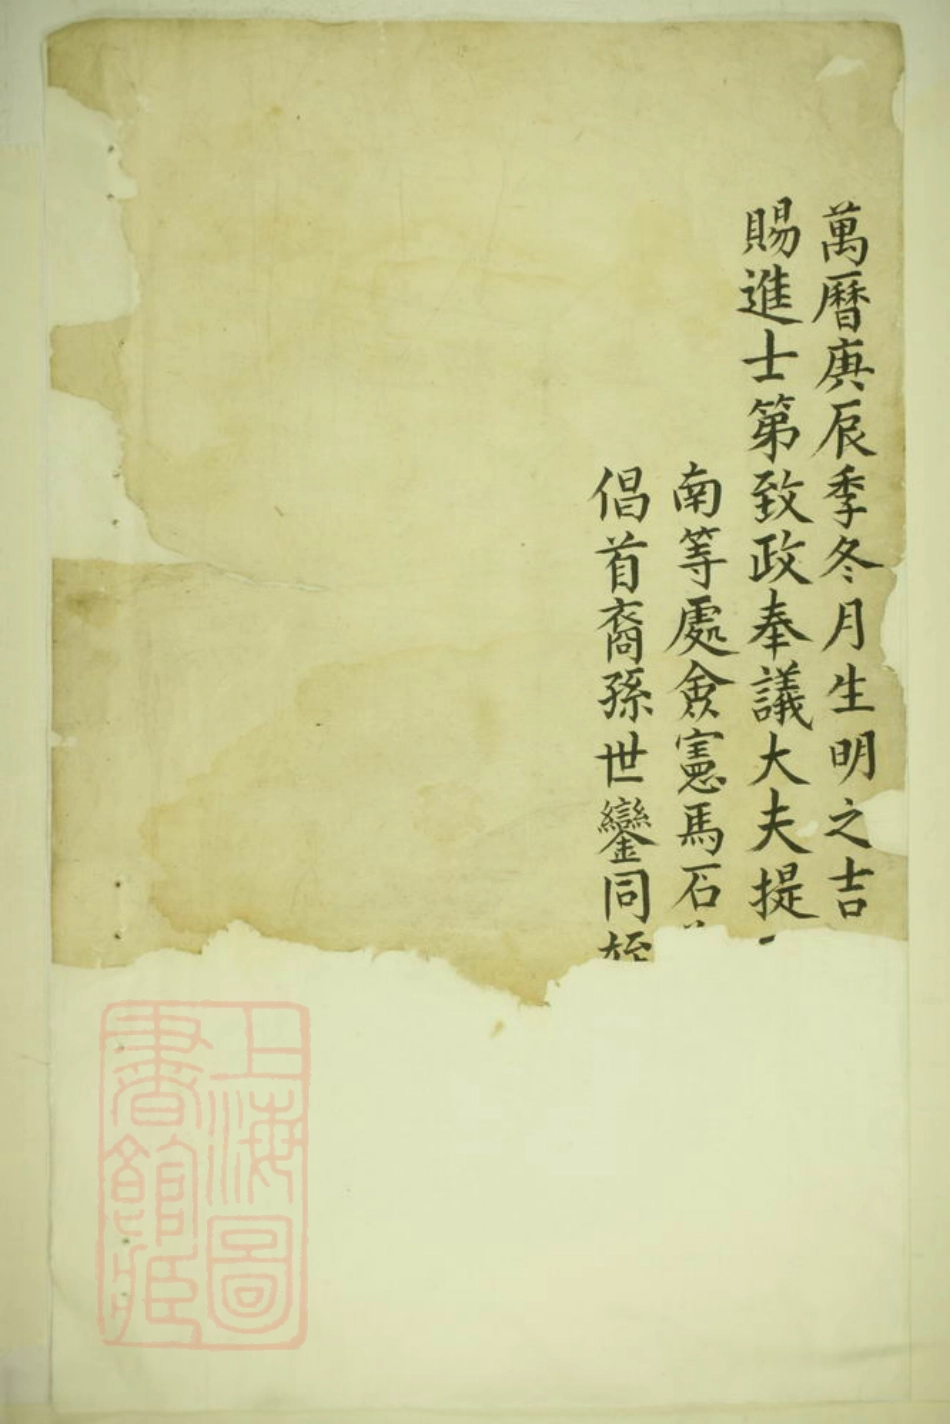 萬曆庚辰季冬月生明之吉
賜進士第致政奉議大夫提
南等處僉憲馬石
倡首裔孫世鑾同姪
上海圖書館藏